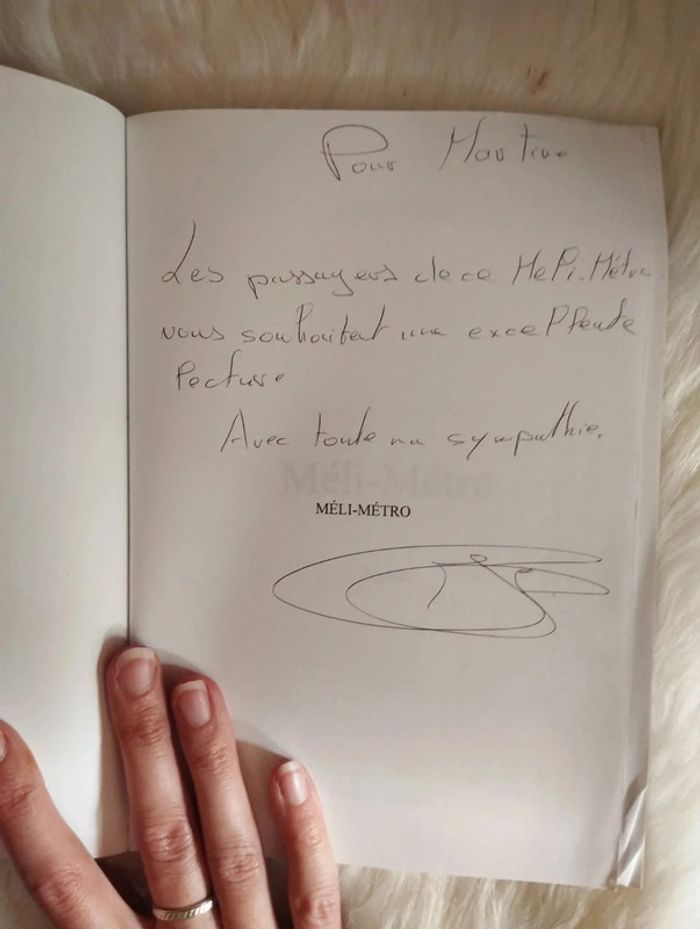 Pour Martine
Les passagers de ce Méli-Métro
vous souhaitent une excellente
lecture
Avec toute ma sympathie.
Méli-Métro
MÉLI-MÉTRO